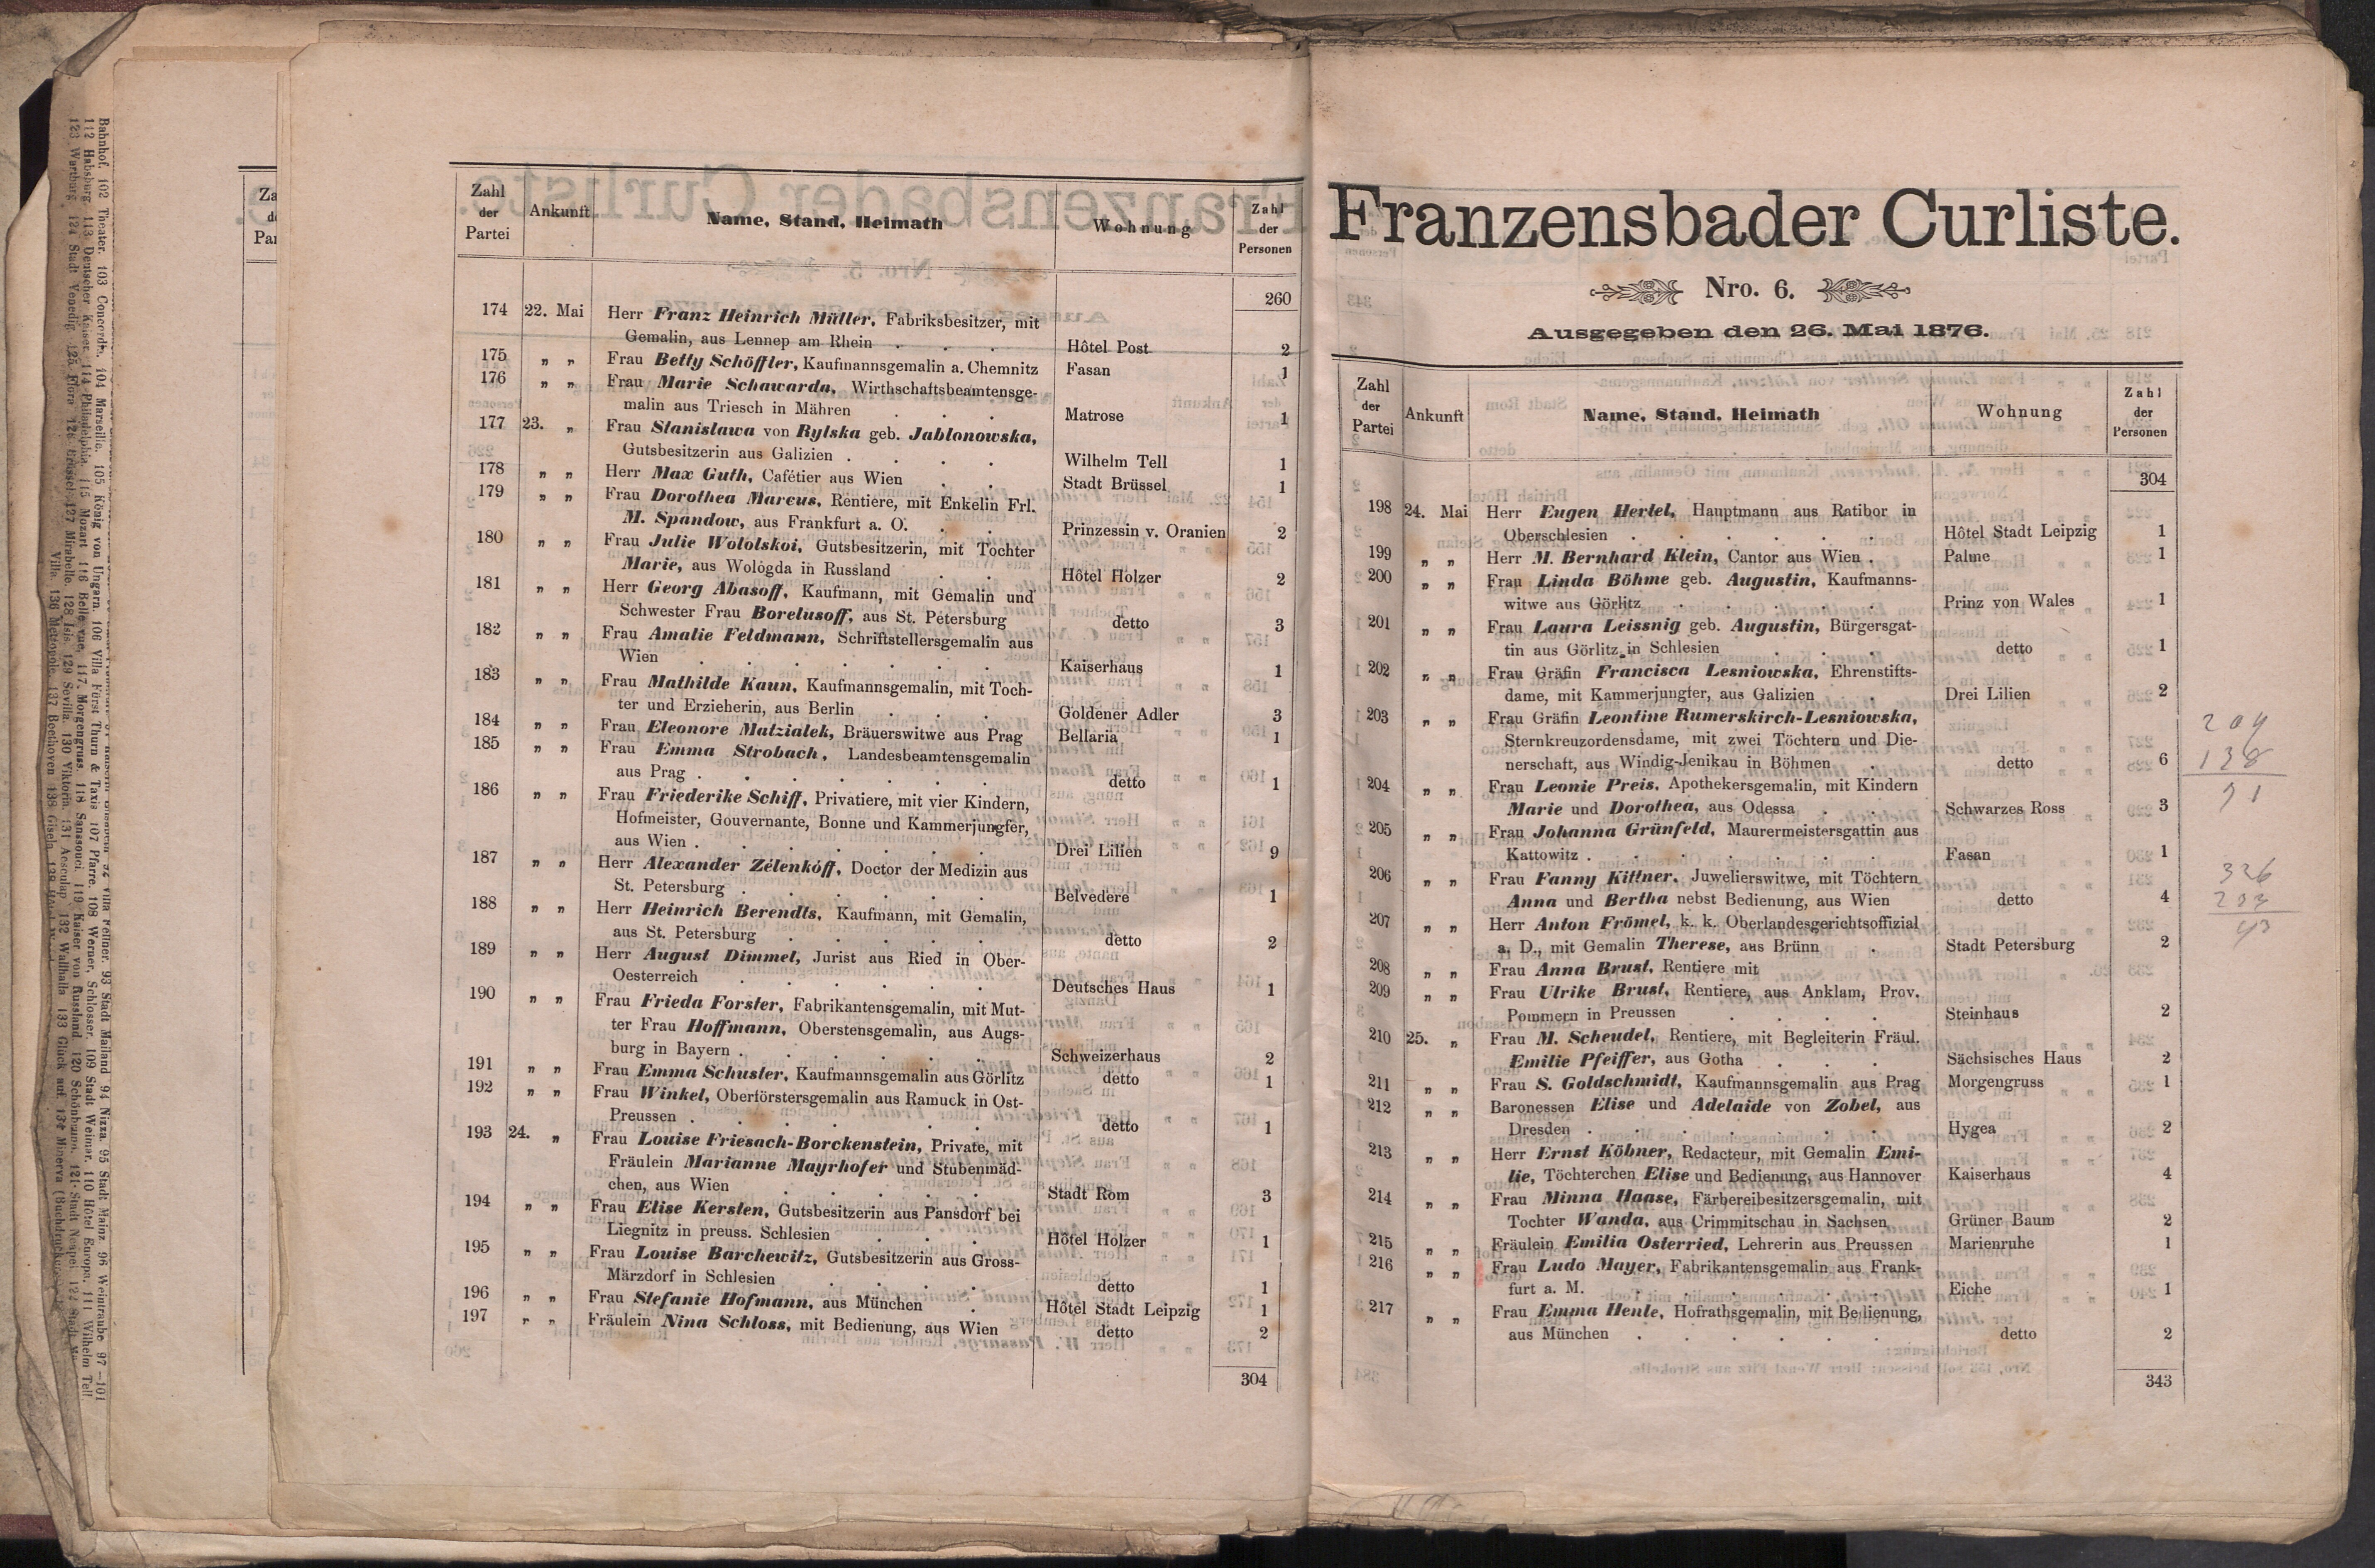 Zahl
der
Partei
Ankunft
Name, Stand, Heimath
Wohnung
Zahl
der
Personen
260
174 22. Mai Herr Franz Heinrich Müller, Fabriksbesitzer, mit
Gemalin, aus Lennep am Rhein . . . Hôtel Post 2
175 „ „ Frau Betty Schöffler, Kaufmannsgemalin a. Chemnitz Fasan 1
176 „ „ Frau Marie Schawarda, Wirthschaftsbeamtensge-
malin aus Triesch in Mähren . . . Matrose 1
177 23. „ Frau Stanislawa von Rylska geb. Jablonowska,
Gutsbesitzerin aus Galizien . . . . Wilhelm Tell 1
178 „ „ Herr Max Guth, Cafétier aus Wien . . Stadt Brüssel 1
179 „ „ Frau Dorothea Marcus, Rentiere, mit Enkelin Frl.
M. Spandow, aus Frankfurt a. O. . . Prinzessin v. Oranien 2
180 „ „ Frau Julie Wololskoi, Gutsbesitzerin, mit Tochter
Marie, aus Wologda in Russland . . Hôtel Holzer 2
181 „ „ Herr Georg Abasoff, Kaufmann, mit Gemalin und
Schwester Frau Borelusoff, aus St. Petersburg detto 3
182 „ „ Frau Amalie Feldmann, Schriftstellersgemalin aus
Wien . . . . . . . Kaiserhaus 1
183 „ „ Frau Mathilde Kaun, Kaufmannsgemalin, mit Toch-
ter und Erzieherin, aus Berlin . . . Goldener Adler 3
184 „ „ Frau Eleonore Matzialek, Bräuerswitwe aus Prag Bellaria 1
185 „ „ Frau Emma Strobach, Landesbeamtensgemalin
aus Prag . . . . . . . detto 1
186 „ „ Frau Friederike Schiff, Privatiere, mit vier Kindern,
Hofmeister, Gouvernante, Bonne und Kammerjungfer,
aus Wien . . . . . . . Drei Lilien 9
187 „ „ Herr Alexander Zélenkóff, Doctor der Medizin aus
St. Petersburg . . . . . . Belvedere 1
188 „ „ Herr Heinrich Berendts, Kaufmann, mit Gemalin,
aus St. Petersburg . . . . . detto 2
189 „ „ Herr August Dimmel, Jurist aus Ried in Ober-
Oesterreich . . . . . . Deutsches Haus 1
190 „ „ Frau Frieda Forster, Fabrikantensgemalin, mit Mut-
ter Frau Hoffmann, Oberstensgemalin, aus Augs-
burg in Bayern . . . . . . Schweizerhaus 2
191 „ „ Frau Emma Schuster, Kaufmannsgemalin aus Görlitz detto 1
192 „ „ Frau Winkel, Oberförstersgemalin aus Ramuck in Ost-
Preussen . . . . . . . detto 1
193 24. „ Frau Louise Friesach-Borckenstein, Private, mit
Fräulein Marianne Mayrhofer und Stubenmäd-
chen, aus Wien . . . . . Stadt Rom 3
194 „ „ Frau Elise Kersten, Gutsbesitzerin aus Pansdorf bei
Liegnitz in preuss. Schlesien . . . Hôtel Holzer 1
195 „ „ Frau Louise Barchewitz, Gutsbesitzerin aus Gross-
Märzdorf in Schlesien . . . . detto 1
196 „ „ Frau Stefanie Hofmann, aus München . Hôtel Stadt Leipzig 1
197 „ „ Fräulein Nina Schloss, mit Bedienung, aus Wien detto 2
304
Franzensbader Curliste.
Nro. 6.
Ausgegeben den 26. Mai 1876.
Zahl
der
Partei
Ankunft
Name, Stand, Heimath
Wohnung
Zahl
der
Personen
304
198 24. Mai Herr Eugen Hertel, Hauptmann aus Ratibor in
Oberschlesien . . . . . . Hôtel Stadt Leipzig 1
199 „ „ Herr M. Bernhard Klein, Cantor aus Wien . Palme 1
200 „ „ Frau Linda Böhme geb. Augustin, Kaufmanns-
witwe aus Görlitz . . . . . Prinz von Wales 1
201 „ „ Frau Laura Leissnig geb. Augustin, Bürgersgat-
tin aus Görlitz in Schlesien . . . detto 1
202 „ „ Frau Gräfin Francisca Lesniowska, Ehrenstifts-
dame, mit Kammerjungfer, aus Galizien . Drei Lilien 2
203 „ „ Frau Gräfin Leontine Rumerskirch-Lesniowska,
Sternkreuzordensdame, mit zwei Töchtern und Die-
nerschaft, aus Windig-Jenikau in Böhmen . detto 6
204 „ „ Frau Leonie Preis, Apothekersgemalin, mit Kindern
Marie und Dorothea, aus Odessa . . Schwarzes Ross 3
205 „ „ Frau Johanna Grünfeld, Maurermeistersgattin aus
Kattowitz . . . . . . . Fasan 1
206 „ „ Frau Fanny Kittner, Juwelierswitwe, mit Töchtern
Anna und Bertha nebst Bedienung, aus Wien detto 4
207 „ „ Herr Anton Frömel, k. k. Oberlandesgerichtsoffizial
a. D., mit Gemalin Therese, aus Brünn . Stadt Petersburg 2
208 „ „ Frau Anna Brust, Rentiere mit
209 „ „ Frau Ulrike Brust, Rentiere, aus Anklam, Prov.
Pommern in Preussen . . . . Steinhaus 2
210 25. „ Frau M. Scheudel, Rentiere, mit Begleiterin Fräul.
Emilie Pfeiffer, aus Gotha . . . Sächsisches Haus 2
211 „ „ Frau S. Goldschmidt, Kaufmannsgemalin aus Prag Morgengruss 1
212 „ „ Baronessen Elise und Adelaide von Zobel, aus
Dresden . . . . . . . Hygea 2
213 „ „ Herr Ernst Köbner, Redacteur, mit Gemalin Emi-
lie, Töchterchen Elise und Bedienung, aus Hannover Kaiserhaus 4
214 „ „ Frau Minna Haase, Färbereibesitzersgemalin, mit
Tochter Wanda, aus Crimmitschau in Sachsen Grüner Baum 2
215 „ „ Fräulein Emilia Osterried, Lehrerin aus Preussen Marienruhe 1
216 „ „ Frau Ludo Mayer, Fabrikantensgemalin aus Frank-
furt a. M. . . . . . . Eiche 1
217 „ „ Frau Emma Henle, Hofrathsgemalin, mit Bedienung,
aus München . . . . . . detto 2
343